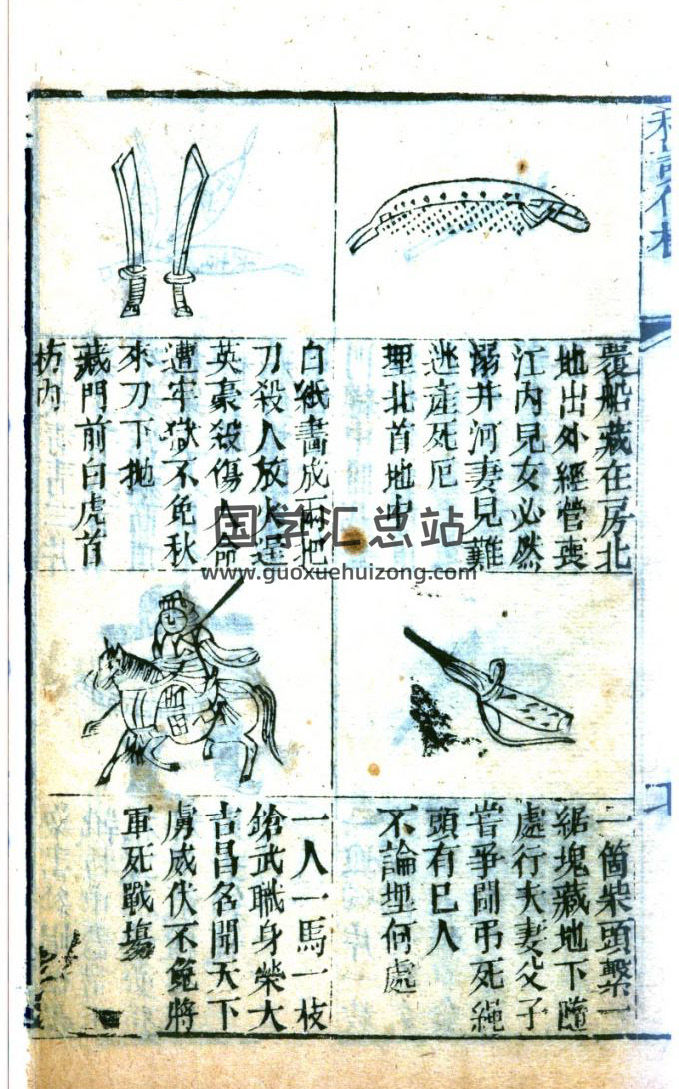 秘訣仙機
覆船藏在房北
地出外經營喪
江內見女必然
溺井河妻見難
迯産死厄
埋北首地中
白紙畫成兩把
刀殺人放火逞
英豪殺傷人命
遭牢獄不免秋
來刀下抛
藏門前白虎首
枋內
国学汇总站
www.guoxuehuizong.com
一箇柴頭繫一
塊藏地下隨
處行夫妻父子
嘗爭鬪吊死繩
頭有巳人
不論埋何處
一人一馬一枝
鎗武職身榮大
吉昌名聞天下
虜威伏不免將
軍死戰塲